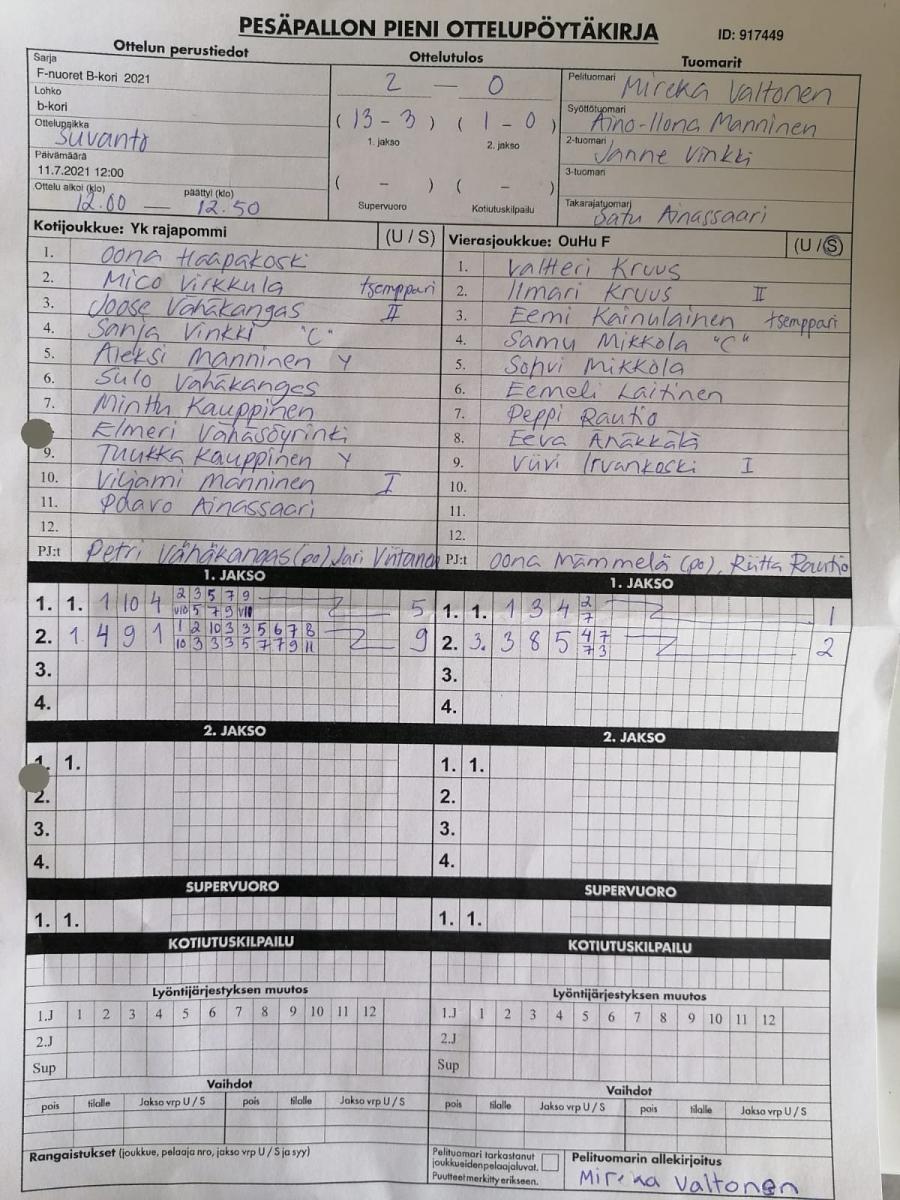 PESÄPALLON PIENI OTTELUPÖYTÄKIRJA
ID: 917449
Ottelun perustiedot
Ottelutulos
Tuomarit
Sarja
F-nuoret B-kori 2021
Lohko
b-kori
Ottelupaikka
Suvanto
Päivämäärä
11.7.2021 12:00
Ottelu alkoi (klo) päättyi (klo)
12.00 — 12.50
2 — 0
( 13 - 3 ) ( 1 - 0 )
1. jakso 2. jakso
( - ) ( - )
Supervuoro Kotiutuskilpailu
Pelituomari Mireka Valtonen
Syöttötuomari Aino-Ilona Manninen
2-tuomari Janne Vinkki
3-tuomari
Takarajatuomari Satu Ainassaari
Kotijoukkue: Yk rajapommi (U / S)
1. Oona Haapakoski
2. Mico Virkkula tsemppari
3. Joose Vähäkangas II
4. Sanja Vinkki "C"
5. Aleksi Manninen Y
6. Sulo Vähäkangas
7. Minttu Kauppinen
Elmeri Vähäsöyrinki
9. Tuukka Kauppinen Y
10. Viljami Manninen I
11. Paavo Ainassaari
12.
PJ:t Petri Vähäkangas (po), Jari
Vierasjoukkue: OuHu F (U / S)
1. Valtteri Kruus
2. Ilmari Kruus II
3. Eemi Kainulainen tsemppari
4. Samu Mikkola "C"
5. Sohvi Mikkola
6. Eemeli Laitinen
7. Peppi Rautio
8. Eeva Änäkkälä
9. Viivi Irvankoski I
10.
11.
12.
PJ:t Oona Mämmelä (po), Riitta Rautio
1. JAKSO
1. 1. 1 10 4 2 3 5 7 9 5
VII0 5 7 9 VII0
2. 1 4 9 1 1 2 10 3 3 5 6 7 8 9
10 3 3 3 5 7 7 9 11
3.
4.
1. JAKSO
1. 1. 1 3 4 2 1
7
2. 3. 3 8 5 4 7 2
7 3
3.
4.
2. JAKSO
1. 1.
2.
3.
4.
2. JAKSO
1. 1.
2.
3.
4.
SUPERVUORO
1. 1.
SUPERVUORO
1. 1.
KOTIUTUSKILPAILU
KOTIUTUSKILPAILU
Lyöntijärjestyksen muutos
1.J 1 2 3 4 5 6 7 8 9 10 11 12
2.J
Sup
Lyöntijärjestyksen muutos
1.J 1 2 3 4 5 6 7 8 9 10 11 12
2.J
Sup
Vaihdot
pois tilalle Jakso vrp U / S pois tilalle Jakso vrp U / S
Vaihdot
pois tilalle Jakso vrp U / S pois tilalle Jakso vrp U / S
Rangaistukset (joukkue, pelaaja nro, jakso vrp U / S ja syy)
Pelituomari tarkastanut
joukkueiden pelaajaluvat.
Puutteet merkitty erikseen.
Pelituomarin allekirjoitus
Mireka Valtonen